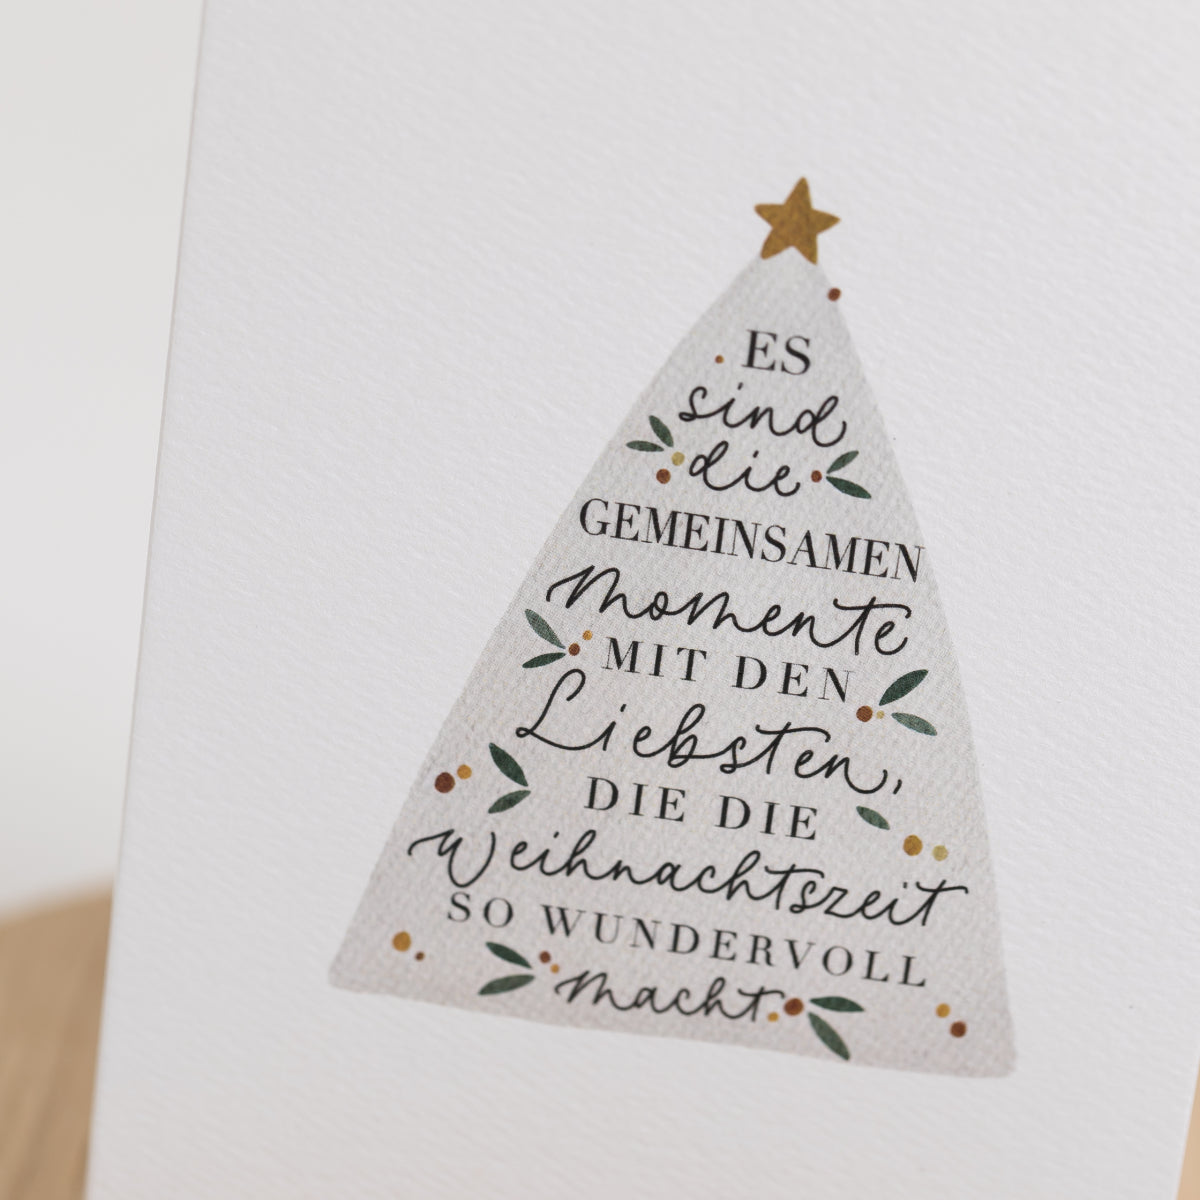 ES
sind
die
GEMEINSAMEN
Momente
MIT DEN
Liebsten,
DIE DIE
Weihnachtszeit
SO WUNDERVOLL
macht